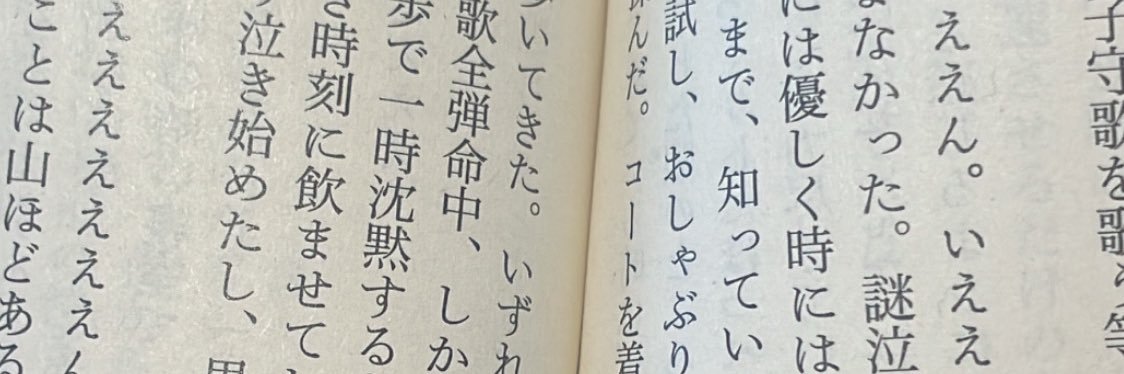 子守歌を歌う等
ええん。いええ
まなかった。謎泣
には優しく時には
まで、知ってい
試し、おしゃぶり
んだ。コートを着
いてきた。いずれ
歌全弾命中、しか
歩で一時沈黙する
き時刻に飲ませて
泣き始めたし、
ええええええん
ことは山ほどある